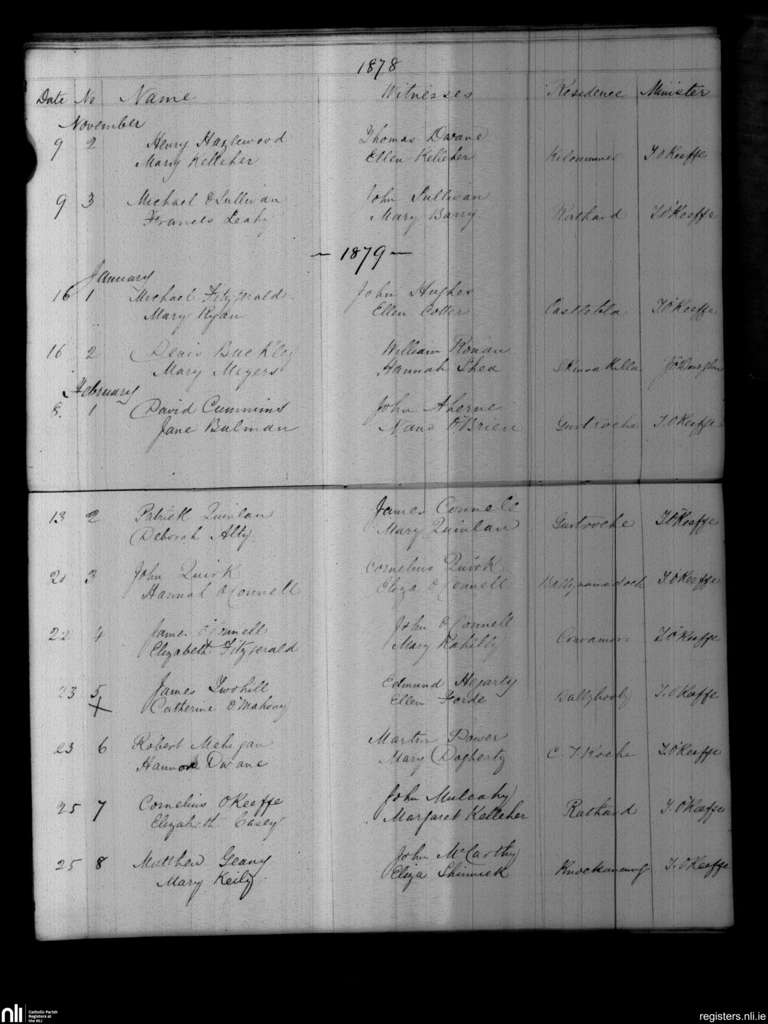 1878
Date No Name Witnesses Residence Minister
November
9 2 Henry Hazlewood Thomas Dwane
Mary Kelleher Ellen Kelleher T. O'Keeffe
9 3 Michael O'Sullivan John Sullivan
Francis Leahy Mary Barry T. O'Keeffe
— 1879 —
January
16 1 Michael Fitzgerald John Hughes
Mary Ryan Ellen Cotter T. O'Keeffe
16 2 Denis Buckley William Ronan
Mary Meyers Hannah Shea
February
8 1 David Cummins John Aherne
Jane Bulman Nano O'Brien Gurtroche T. O'Keeffe
13 2 Patrick Quinlan James Connell
Deborah Alty Mary Quinlan Gurtroche T. O'Keeffe
20 3 John Quirk Cornelius Quirk
Hannah O'Connell Eliza O'Connell T. O'Keeffe
22 4 James O'Connell John O'Connell
Elizabeth Fitzgerald Mary Rahilly T. O'Keeffe
23 5 James Twohill Edmund Hegarty
Catherine O'Mahony Ellen Forde Ballyhooly T. O'Keeffe
23 6 Robert Mehigan Martin Power
Hannora Dwane Mary Dogherty C. T. Roche T. O'Keeffe
25 7 Cornelius O'Keeffe John Mulcahy
Elizabeth Casey Margaret Kelleher Rathard T. O'Keeffe
25 8 Matthew Geany John McCarthy
Mary Keily Eliza Shinnick T. O'Keeffe
nli
Catholic Parish
Registers at
the NLI
registers.nli.ie